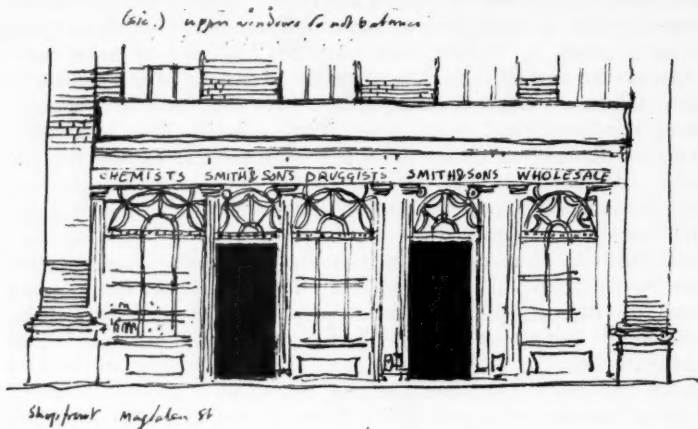 (sic.) upper windows do not balance
CHEMISTS SMITH & SONS DRUGGISTS SMITH & SONS WHOLESALE
Shopfront Magdalen St